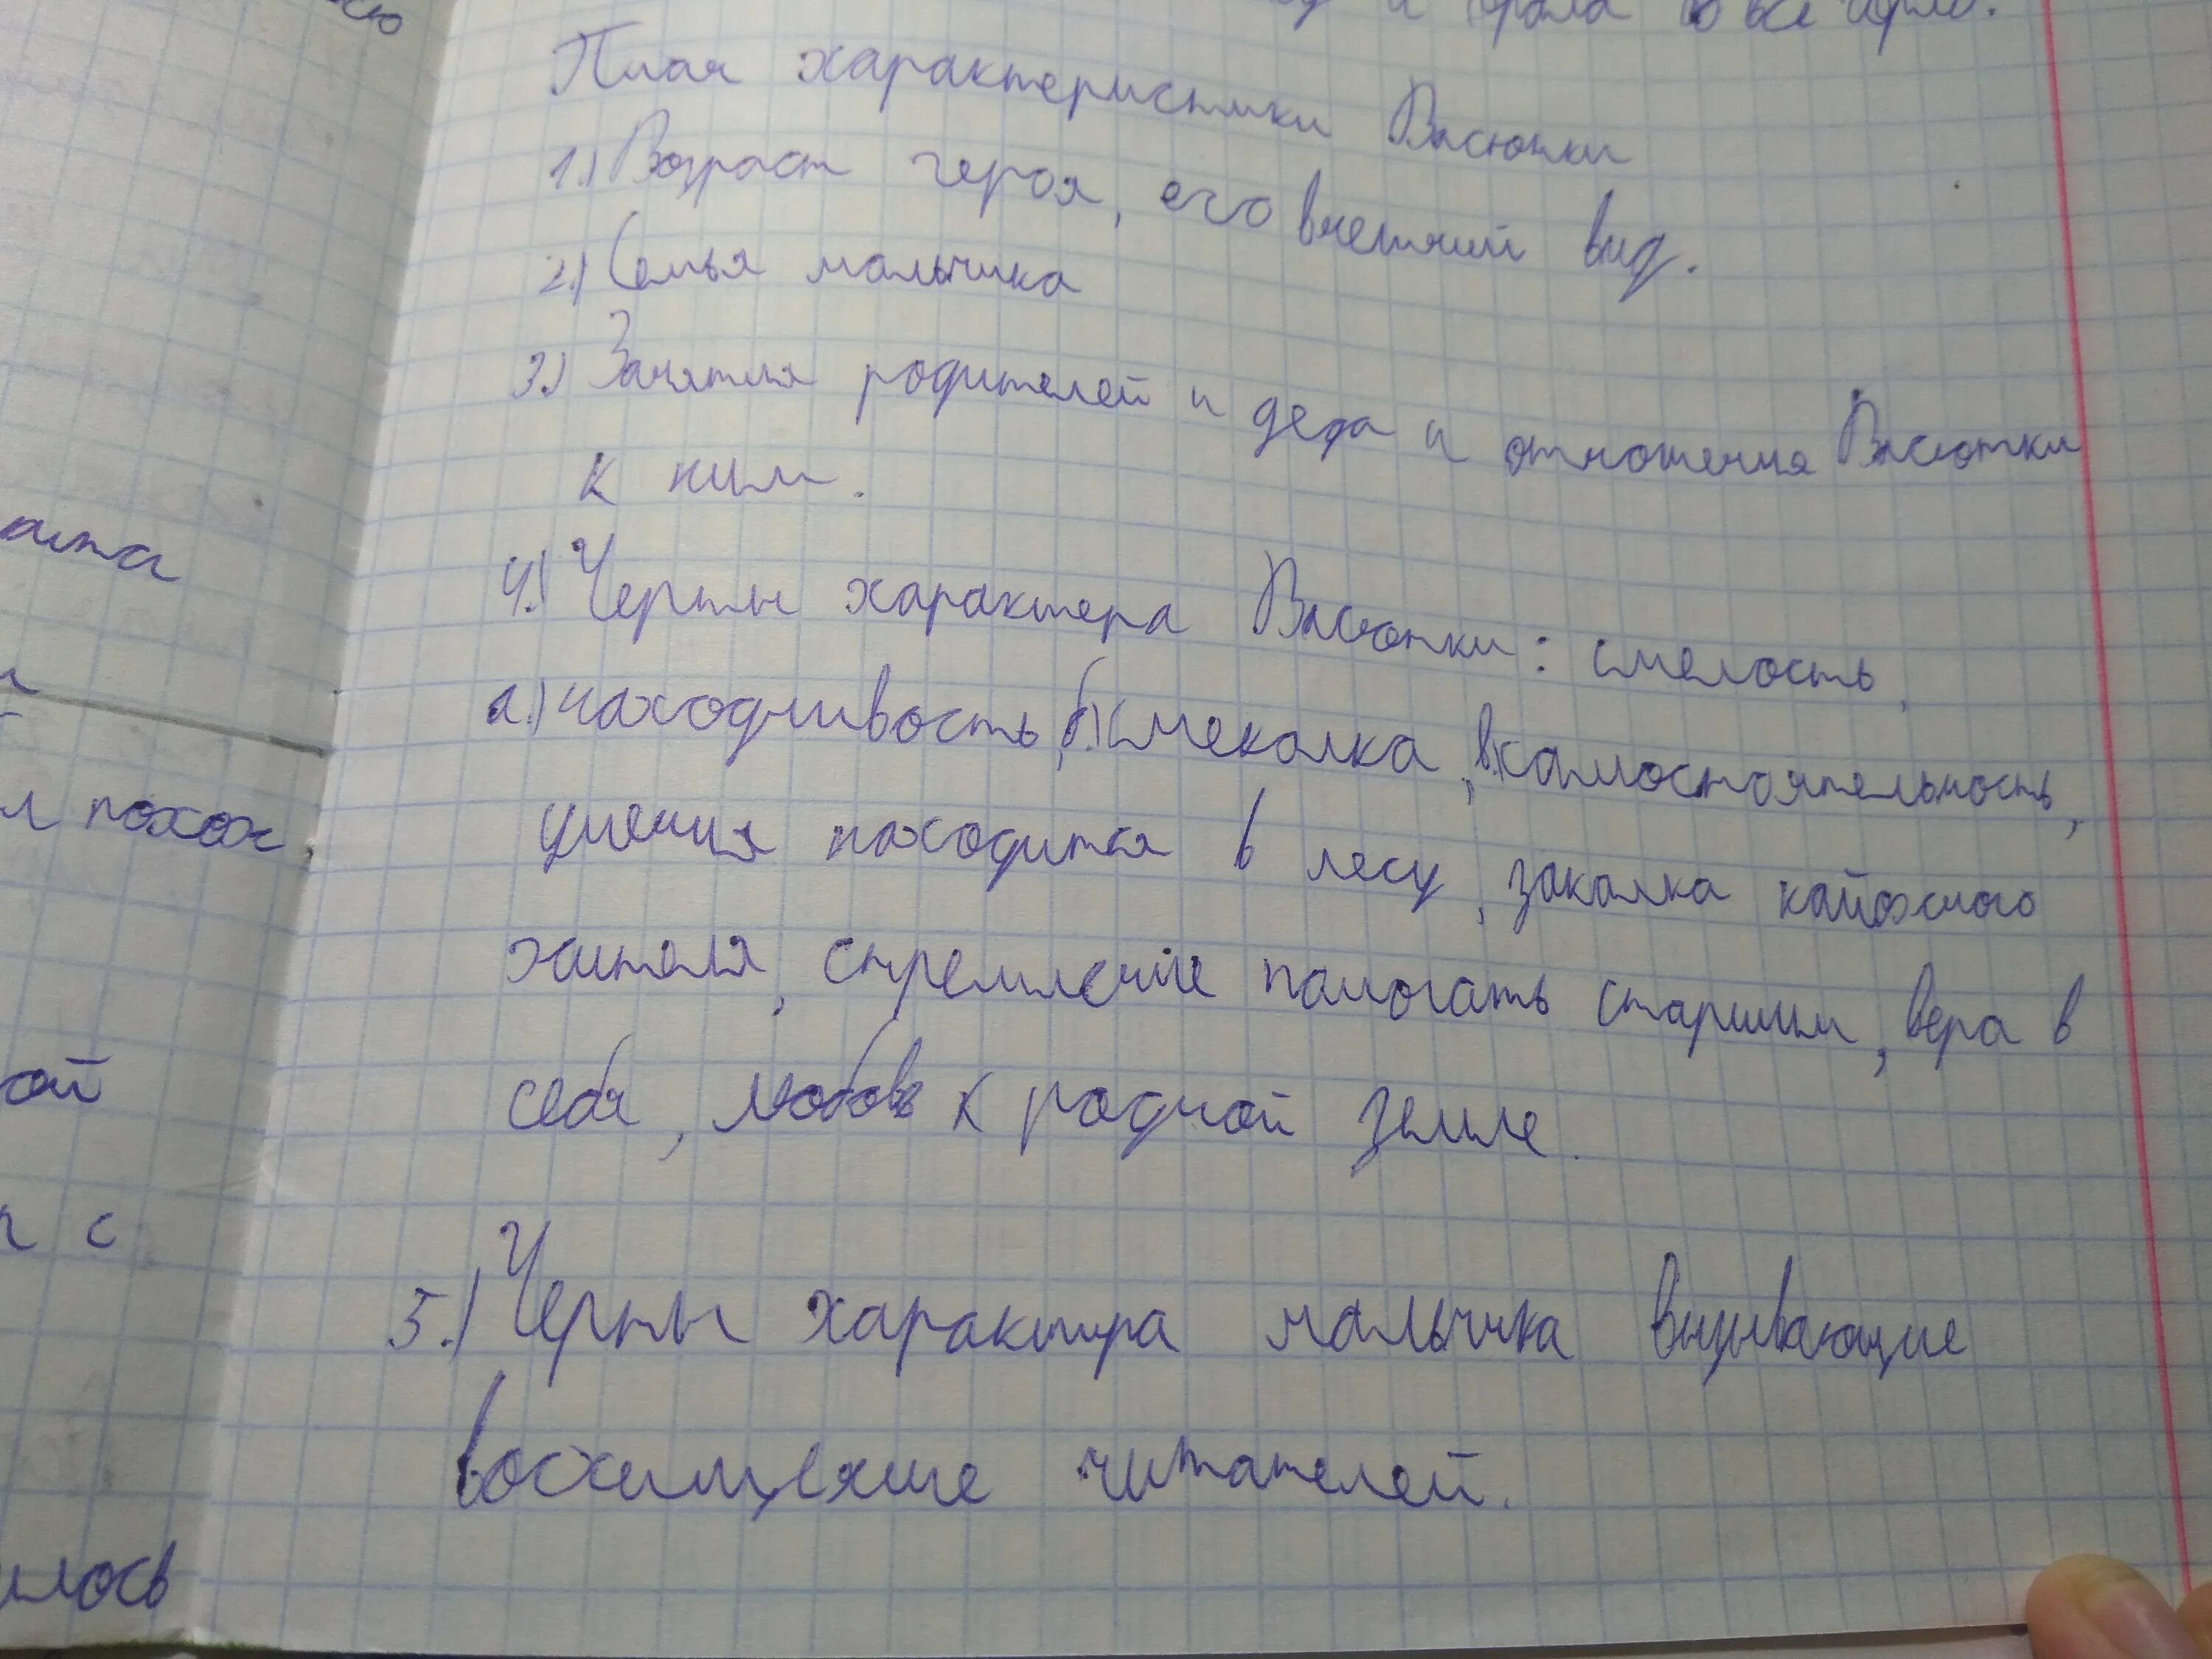 сю
План характеристики Васютки
1.) Возраст героя, его внешний вид.
2.) Семья мальчика
3.) Занятия родителей и деда и отношения Васютки
к ним.
4.) Черты характера Васютки: смелость,
а.) находчивость, б.) смекалка, в.) самостоятельность,
умения находится в лесу, закалка
жителя, стремление помогать старшим, вера в
себя, любовь к родной земле.
5.) Черты характера мальчика вызывающие
восхищение читателей.
похож
ой
с
илось